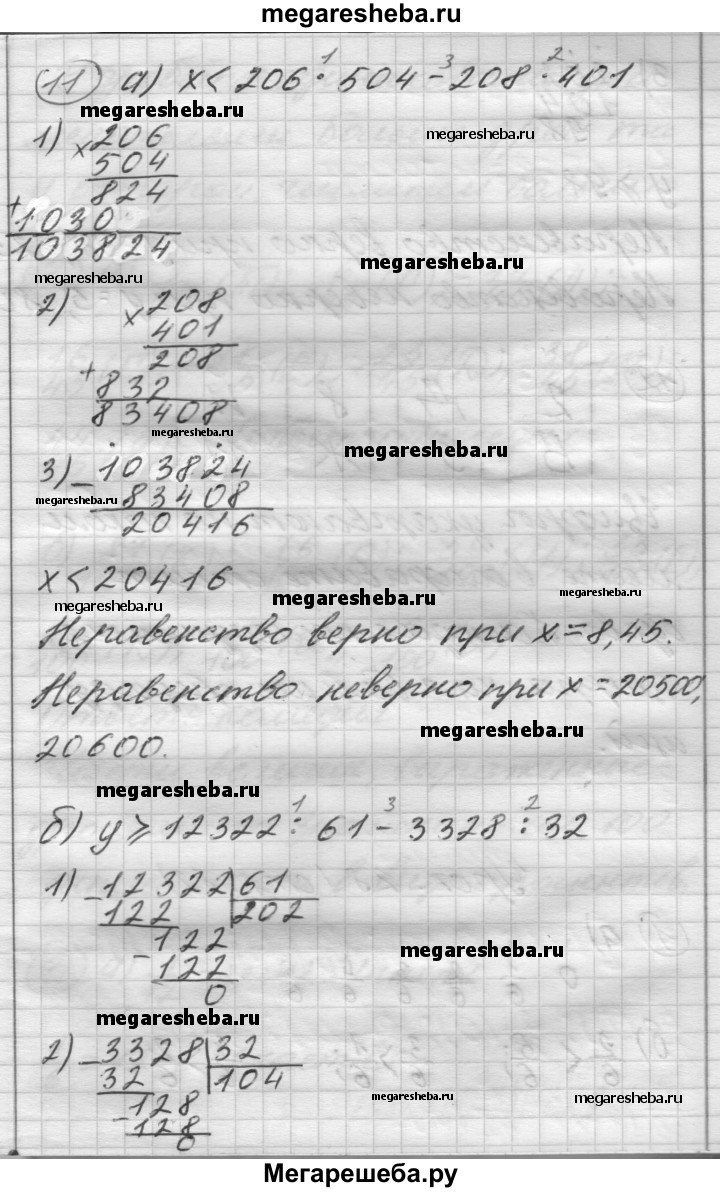 megaresheba.ru
11) а) x < 206 · 504 - 208 · 401
1 3 2
megaresheba.ru
megaresheba.ru
1) × 206
504
824
+ 1030
103824
megaresheba.ru
megaresheba.ru
2) × 208
401
208
+ 832
83408
megaresheba.ru
megaresheba.ru
3) - 103824
83408
megaresheba.ru
20416
x < 20416
megaresheba.ru
megaresheba.ru
megaresheba.ru
Неравенство верно при x = 8, 45.
Неравенство неверно при x = 20500,
megaresheba.ru
20600.
megaresheba.ru
1 3 2
б) y ⩾ 12322 : 61 - 3328 : 32
1) - 12322 | 61
122 202
- 122
122
0
megaresheba.ru
megaresheba.ru
2) - 3328 | 32
32 104
- 128
128
0
megaresheba.ru
megaresheba.ru
Мегарешеба.ру